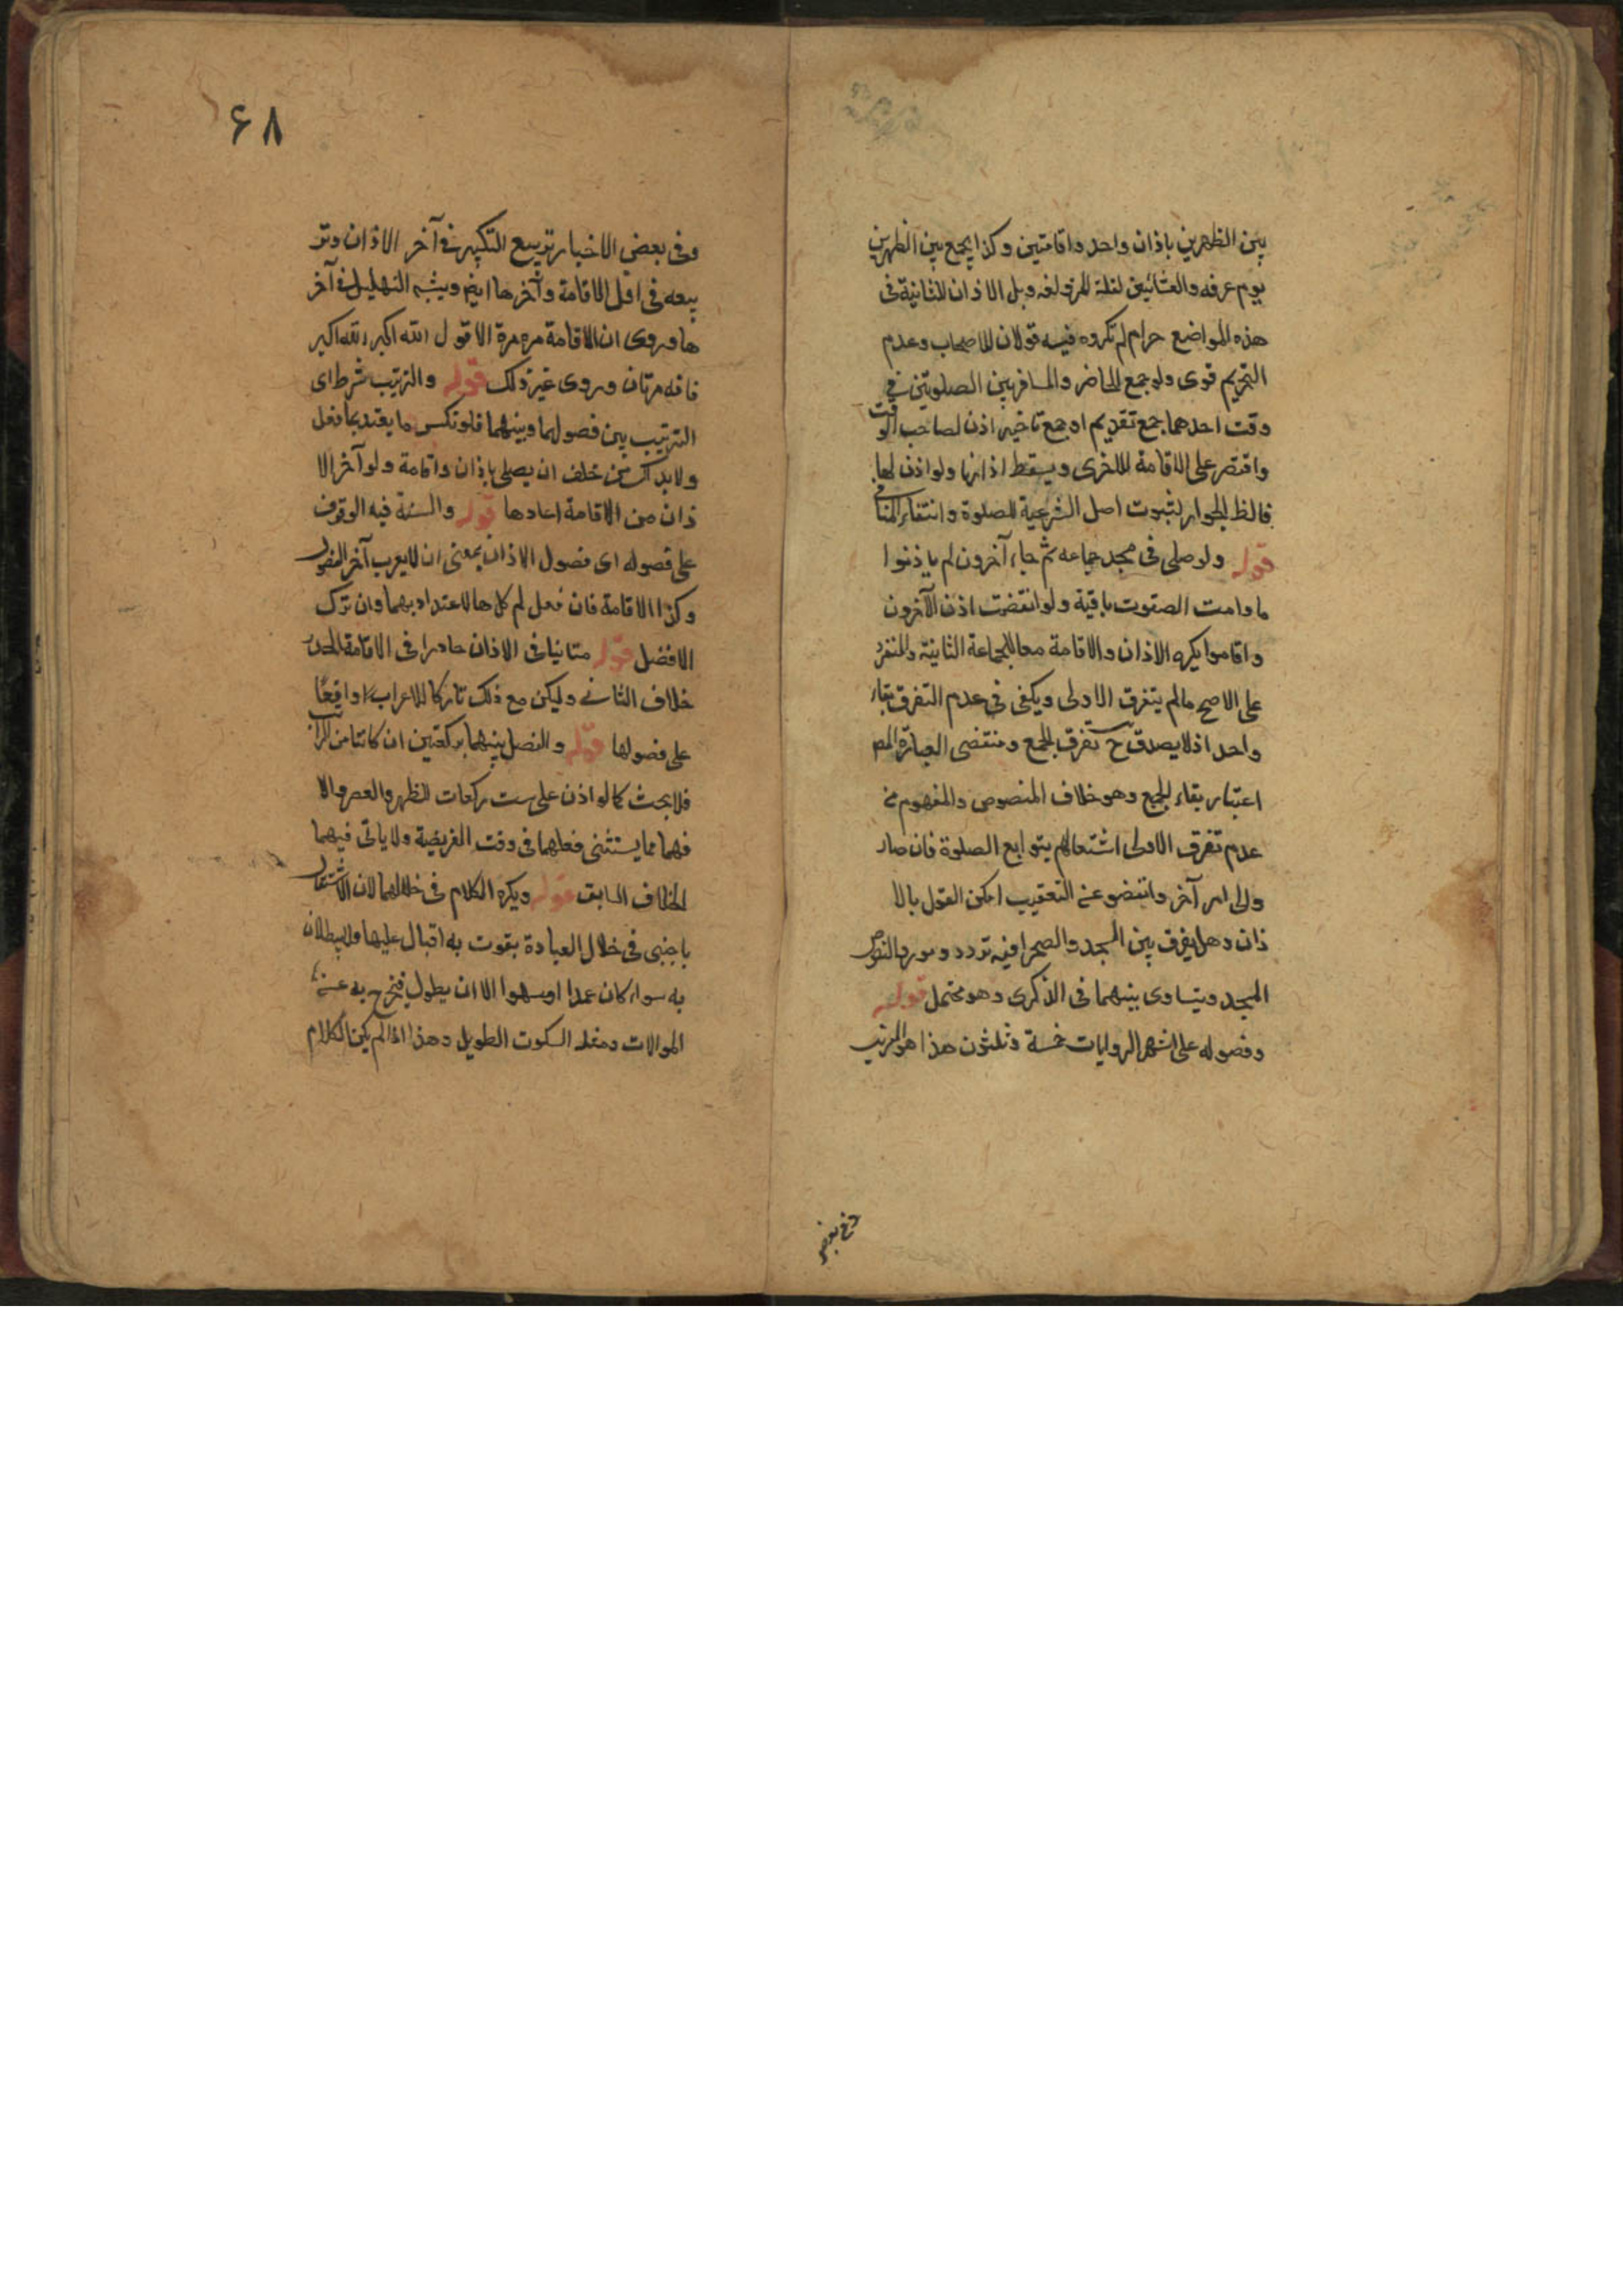 بين الظهرين باذان واحد واقامتين وكذا يجمع بين الظهرين
يوم عرفه والعشائين لليلة المزدلفه وبل الاذان للثانية فى
هذه المواضع حرام لم تكروه فيه قولان للاصحاب وعدم
التحريم قوى ولو جمع الحاضر والمسافر بين الصلوتين في
وقت احدهما جمع تقديم او جمع تاخير اذن لصاحب الوقت
واقتصر على الاقامة للاخرى ويسقط اذانها ولو اذن لها
فالظ الجواز لثبوت اصل الشرعية للصلوة وانتفاء المنافى
قوله ولو صلى فى مسجد جماعه ثم جاء آخرون لم ياذنوا
ما دامت الصفوت باقية ولو انفضت اذن الآخرون
واقاموا يكره الاذان والاقامة معا للجماعة الثانية والمنفرد
على الاصح مالم يتفرق الاولى ويكفى فى عدم التفرق بقاء
واحد اذ لا يصدق ح تفرق الجمع ومنتضى العبارة المص
اعتبار بقاء الجمع وهو خلاف المنصوص والمفهوم من
عدم تفرق الاولى اشتغالهم بتوابع الصلوة فان صار
والى امر آخر وانتضو عن التعقيب امكن القول بالا
ذان وهل يفرق بين المسجد والصحرا فيه تردد ومورد النصوص
المسجد ويتساوى بينهما فى الذكرى وهو محتمل قوله
وفصوله على اشهر الروايات خمسة وثلثون هذا هو الترتيب
وفى بعض
۶۸
وفى بعض الاخبار تربيع التكبير فى آخر الاذان وتر
بيعه فى اول الاقامة وآخرها ايض ويثبه التهليل فى آخر
ها وروى ان الاقامة مره مرة الا قول الله اكبر الله اكبر
فانه مرتان وروى غير ذلك قوله والترتيب شرط اى
الترتيب بين فصولهما وبينهما فلو نكس ما يعتد بما فعل
ولا بد لمن خلف ان يصلى باذان واقامة ولو آخر الا
ذان من الاقامة اعادها قوله والسنة فيه الوقوف
على فصوله اى فصول الاذان بمعنى ان لا يعرب آخر الفصول
وكذا الاقامة فان فعل لم كل ها للاعتداد بهما وان ترك
الافضل قوله متانيا فى الاذان حادرا فى الاقامة الحدر
خلاف التانى وليكن مع ذلك تاركا للاعراب او اقفا
على فصولها قوله والفصل بينهما بركعتين ان كانتا من الراتبة
فلا بحث كما لو اذن على ست ركعات للظهر والعصر والا
فهما مما يستثنى فعلهما فى وقت الفريضة ولا ياتى فيهما
الخلاف السابق قوله ويكره الكلام فى خلالهما لان الاشتغال
باجنبى فى خلال العبادة يفوت به اقبال عليها ولا يبطلان
به سواء كان عمدا او سهوا الا ان يطول فيخرج به عن
الموالات ومثله السكوت الطويل وهذا اذا لم يكن الكلام